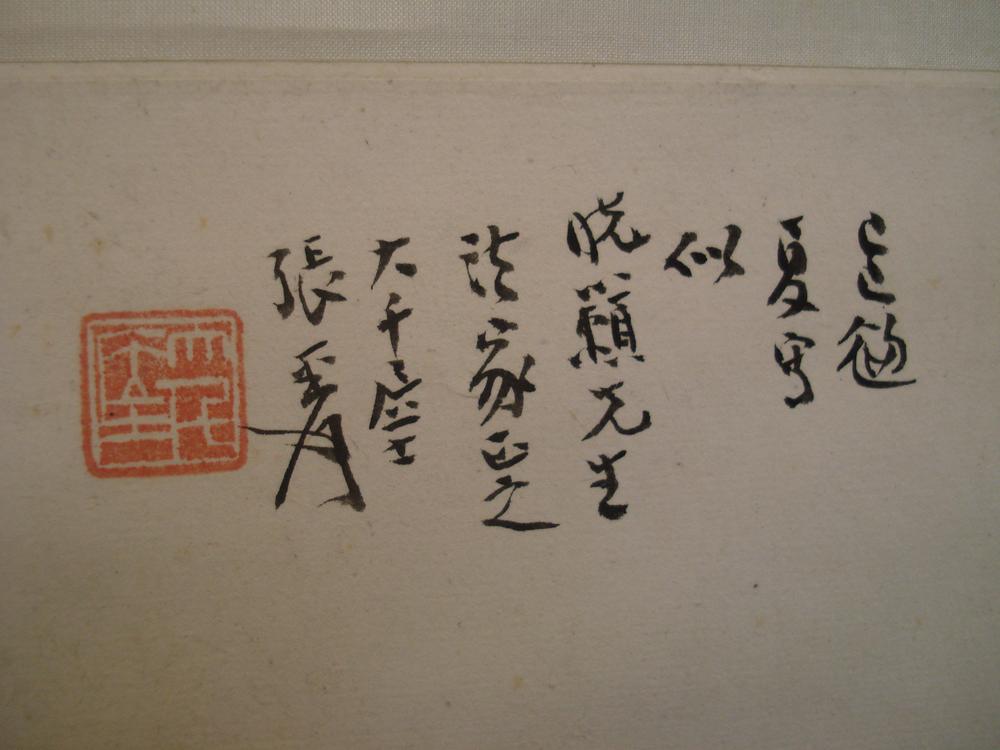 夏写
似
晓籟先生
法家正之
大千居士
張爰